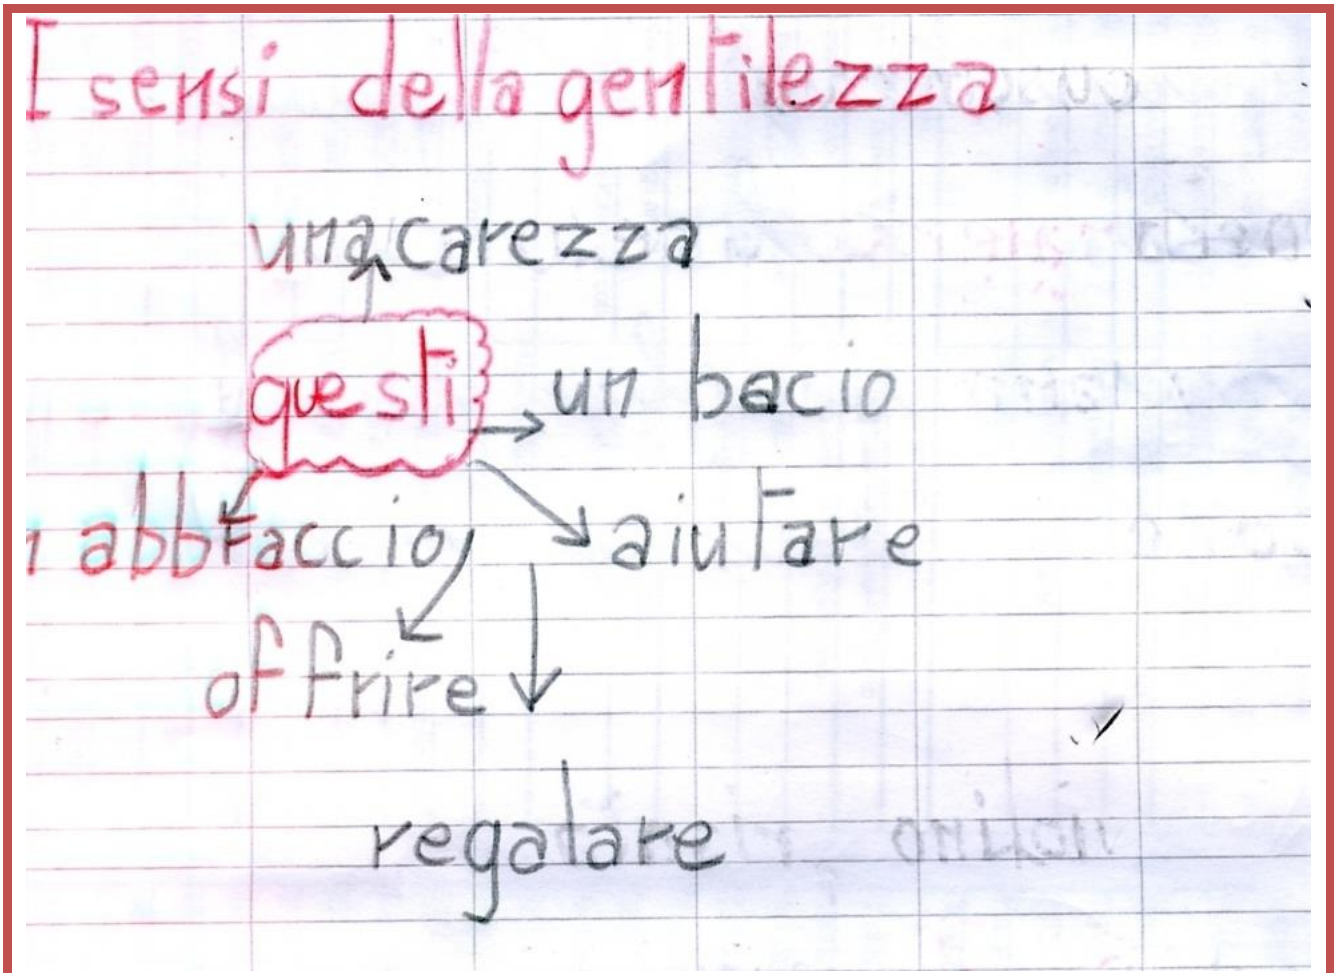 I sensi della gentilezza
una carezza
questi
un bacio
n abbraccio
aiutare
offrire
regalare